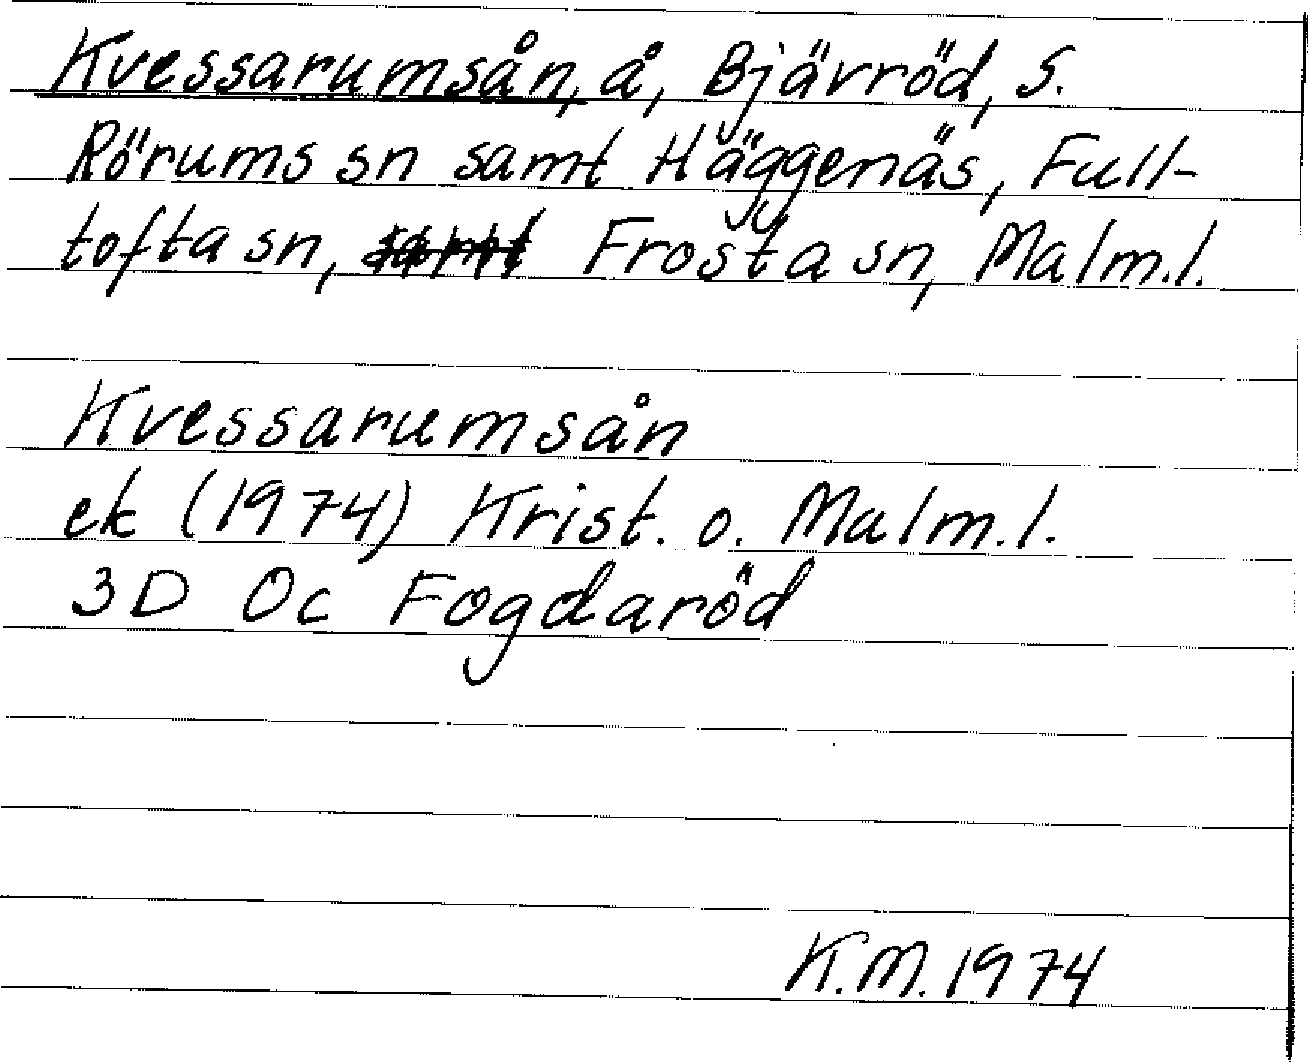 Kvessarumsån, å, Bjävröd, S.
Rörums sn samt Häggenäs, Full-
tofta sn, samt Frosta sn, Malm.l.
Kvessarumsån
ek (1974) Krist. o. Malm.l.
3D Oc Fogdaröd
K.M. 1974